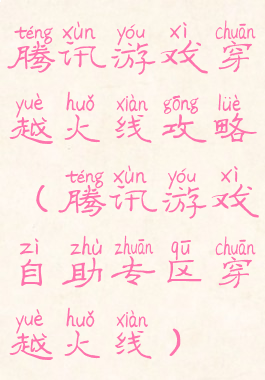 téng xùn yóu xì chuān
腾讯游戏穿
yuè huǒ xiàn gōng lüè
越火线攻略
téng xùn yóu xì
（腾讯游戏
zì zhù zhuān qū chuān
自助专区穿
yuè huǒ xiàn
越火线）